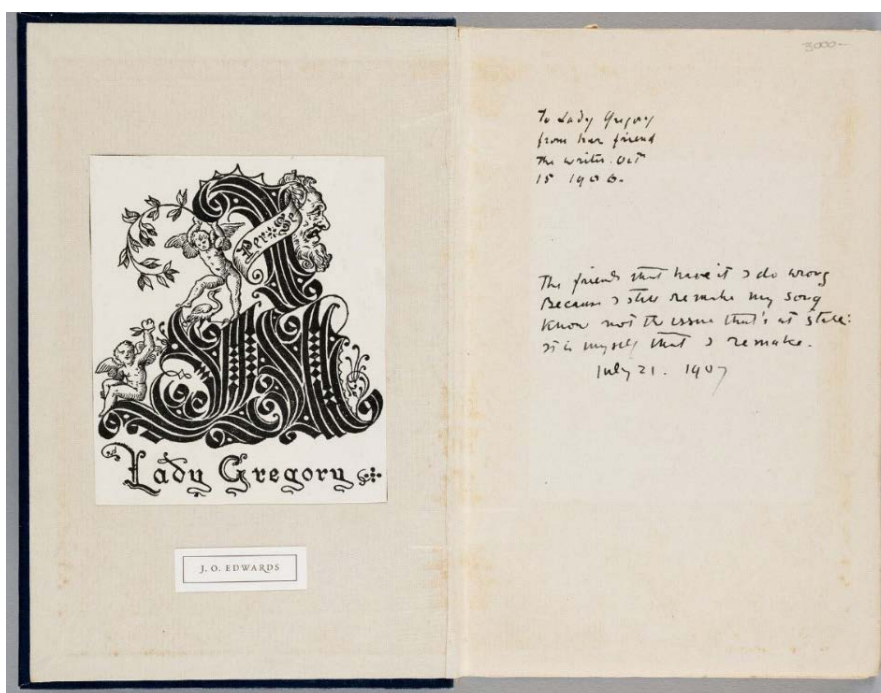 Per S G
Lady Gregory
J. O. EDWARDS
3000—
To Lady Gregory
from her friend
the writer. Oct
15 1906.
The friends that have it I do wrong
Because I still remake my song
Know not the issue that's at stake:
It is myself that I remake.
July 21. 1907